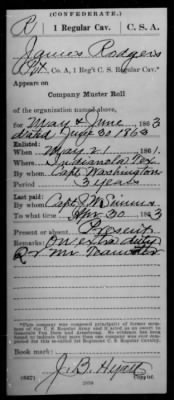 (CONFEDERATE.)
R 1 Regular Cav. C. S. A.
James Rodgers
Pvt, Co. A, 1 Reg't C. S. Regular Cav.*
Appears on
Company Muster Roll
of the organization named above,
for May & June, 1863
dated June 30 1863
Enlisted:
When May 21, 1861.
Where Indianola Tex
By whom Capt. Washington
Period 3 years
Last paid:
By whom Capt. J. W.
To what time Apr 30, 1863
Present or absent Present
Remarks: On extra duty
Q r Mr Teamster
*This company was composed principally of former men
of the U. S. Regular Army and it acted as an escort to
Generals Van Dorn and Armstrong. No record has been found
to indicate that more than one company was ever
for this so-called 1st Regiment C. S. Regular Cavalry.
Book mark:
J. B. Hyatt
(642) Copyist.